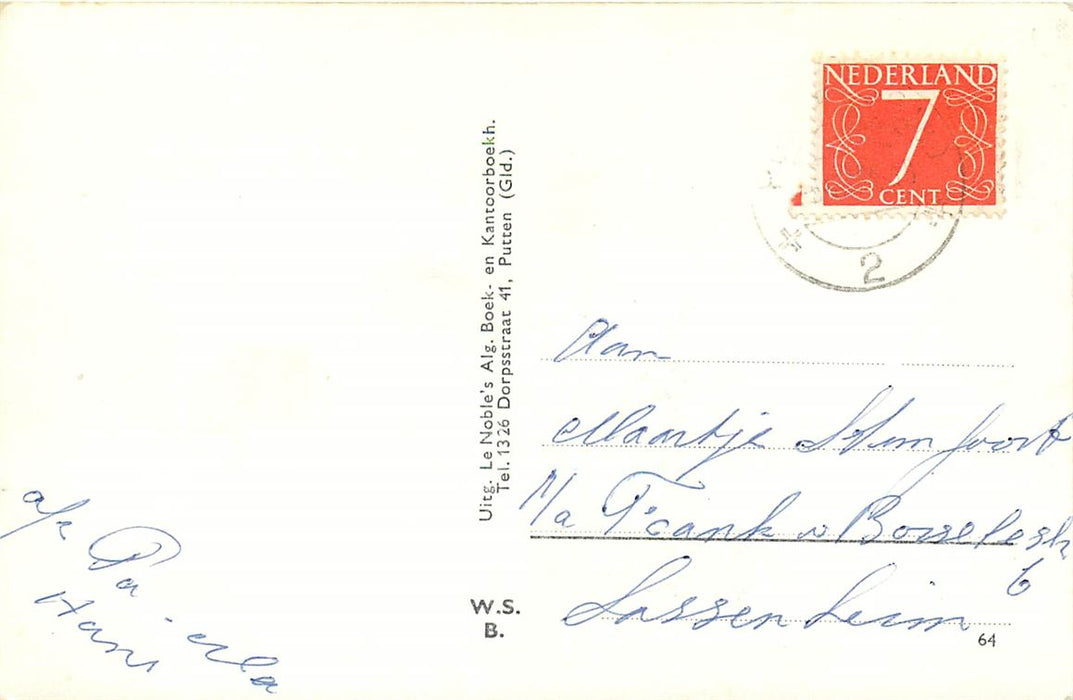 NEDERLAND
7
CENT
2
Uitg. Le Noble's Alg. Boek- en Kantoorboekh.
Tel. 1326 Dorpsstraat 41, Putten (Gld.)
Aan
Maartje
Frank v
6
Sassenheim
Pa - Ma
Hans
W.S.
B.
64